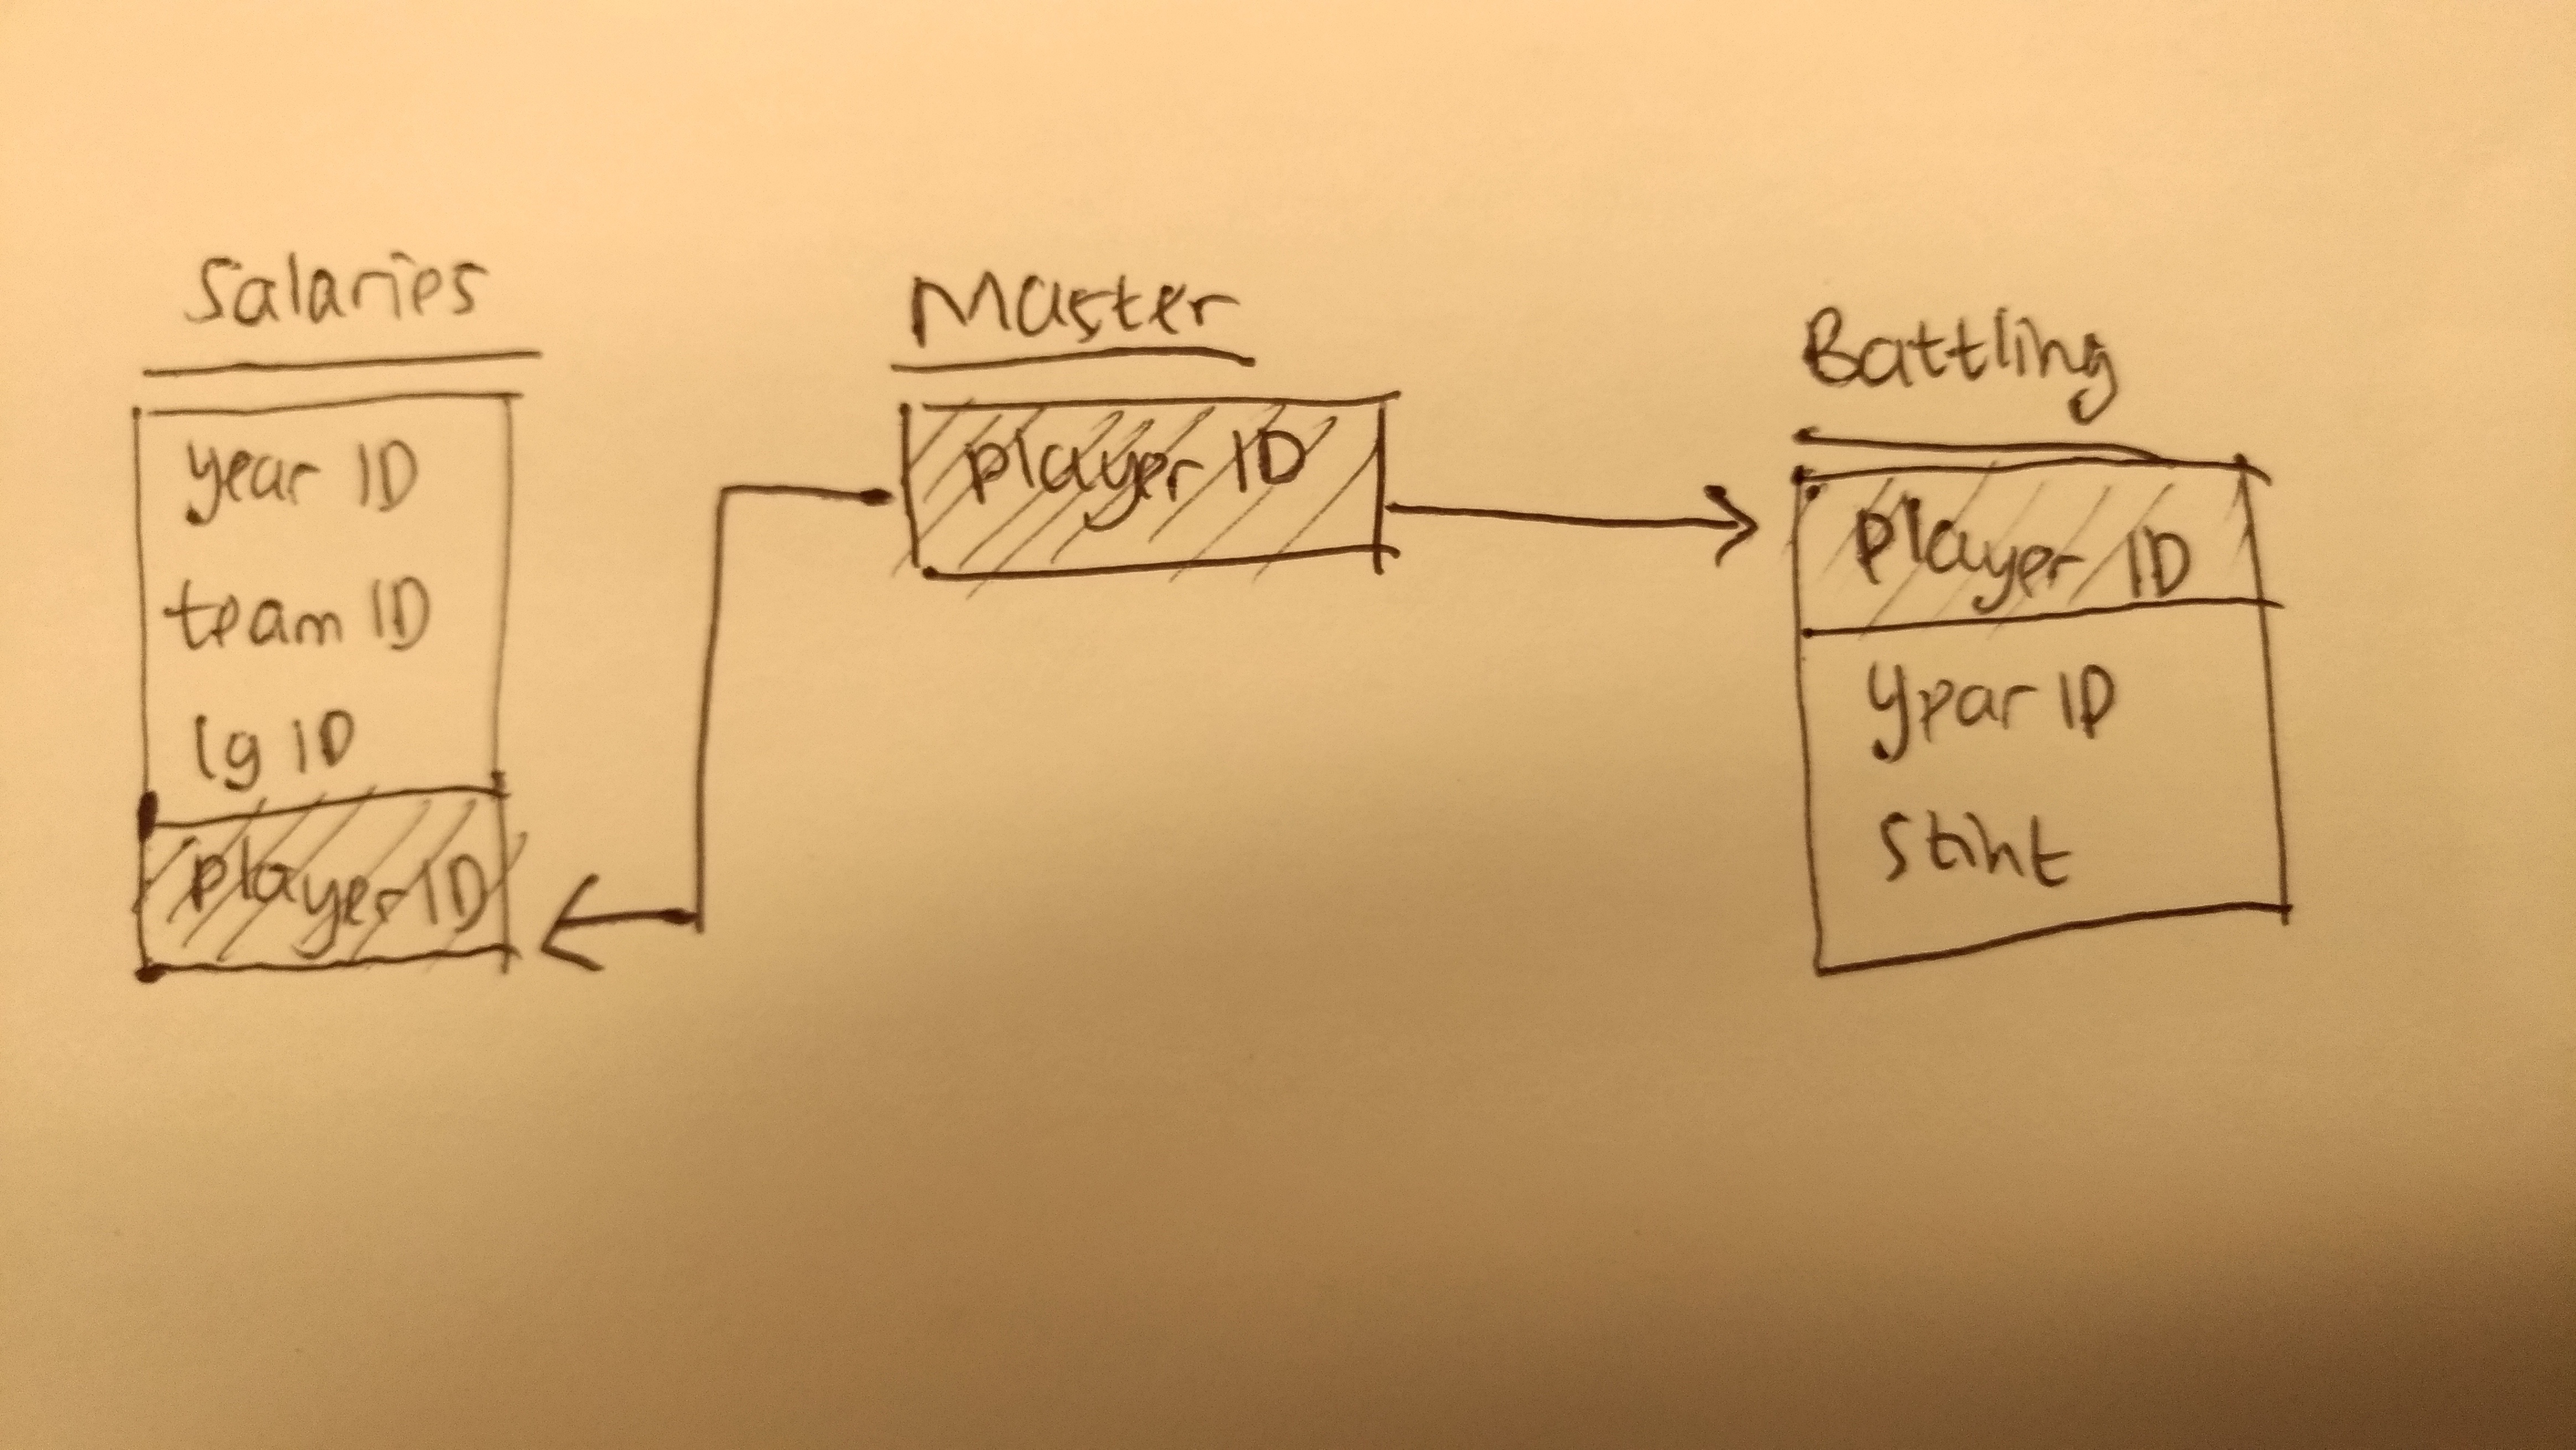 Salaries
year ID
team ID
lg ID
player ID
Master
player ID
Battling
player ID
year ID
stint